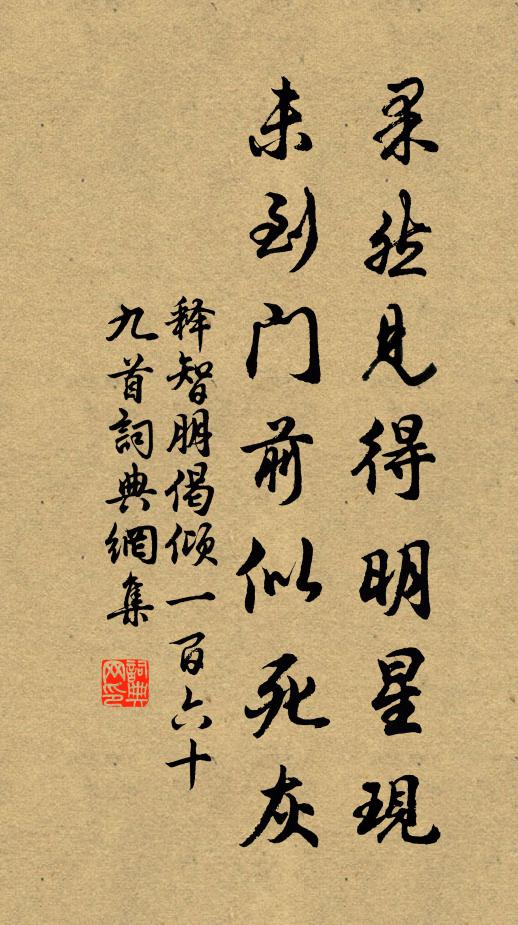 果然見得明星現
未到門前似死灰
释智朋偈傾一百六十
九首詞典網集
詞典网印